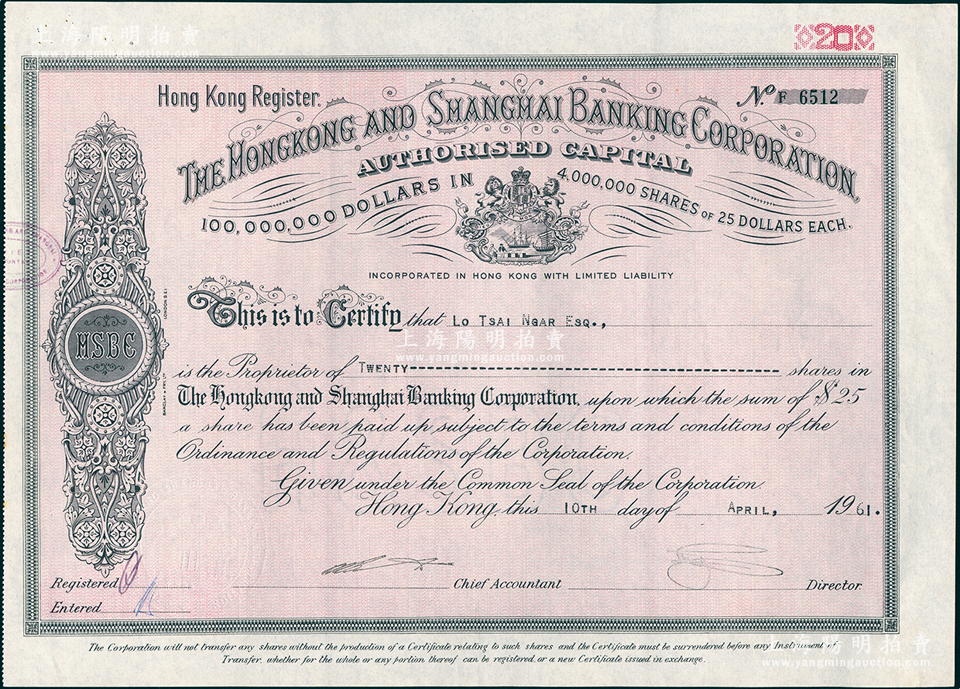 上海陽明拍賣
www.yangmingauction.com
20
Hong Kong Register.
No. F 6512
THE HONGKONG AND SHANGHAI BANKING CORPORATION,
AUTHORISED CAPITAL
100,000,000 DOLLARS IN 4,000,000 SHARES OF 25 DOLLARS EACH.
INCORPORATED IN HONG KONG WITH LIMITED LIABILITY
This is to Certify that LO TSAI NGAR ESQ.,
上海陽明拍賣
www.yangmingauction.com
HSBC
is the Proprietor of TWENTY shares in
The Hongkong and Shanghai Banking Corporation, upon which the sum of $25
a share has been paid up subject to the terms and conditions of the
Ordinance and Regulations of the Corporation.
Given under the Common Seal of the Corporation.
Hong Kong this 10TH day of APRIL, 1961.
Registered
Chief Accountant
Director.
Entered
The Corporation will not transfer any shares without the production of a Certificate relating to such shares and the Certificate must be surrendered before any Instrument of
Transfer, whether for the whole or any portion thereof can be registered, or a new Certificate issued in exchange.
上海陽明拍賣
www.yangmingauction.com